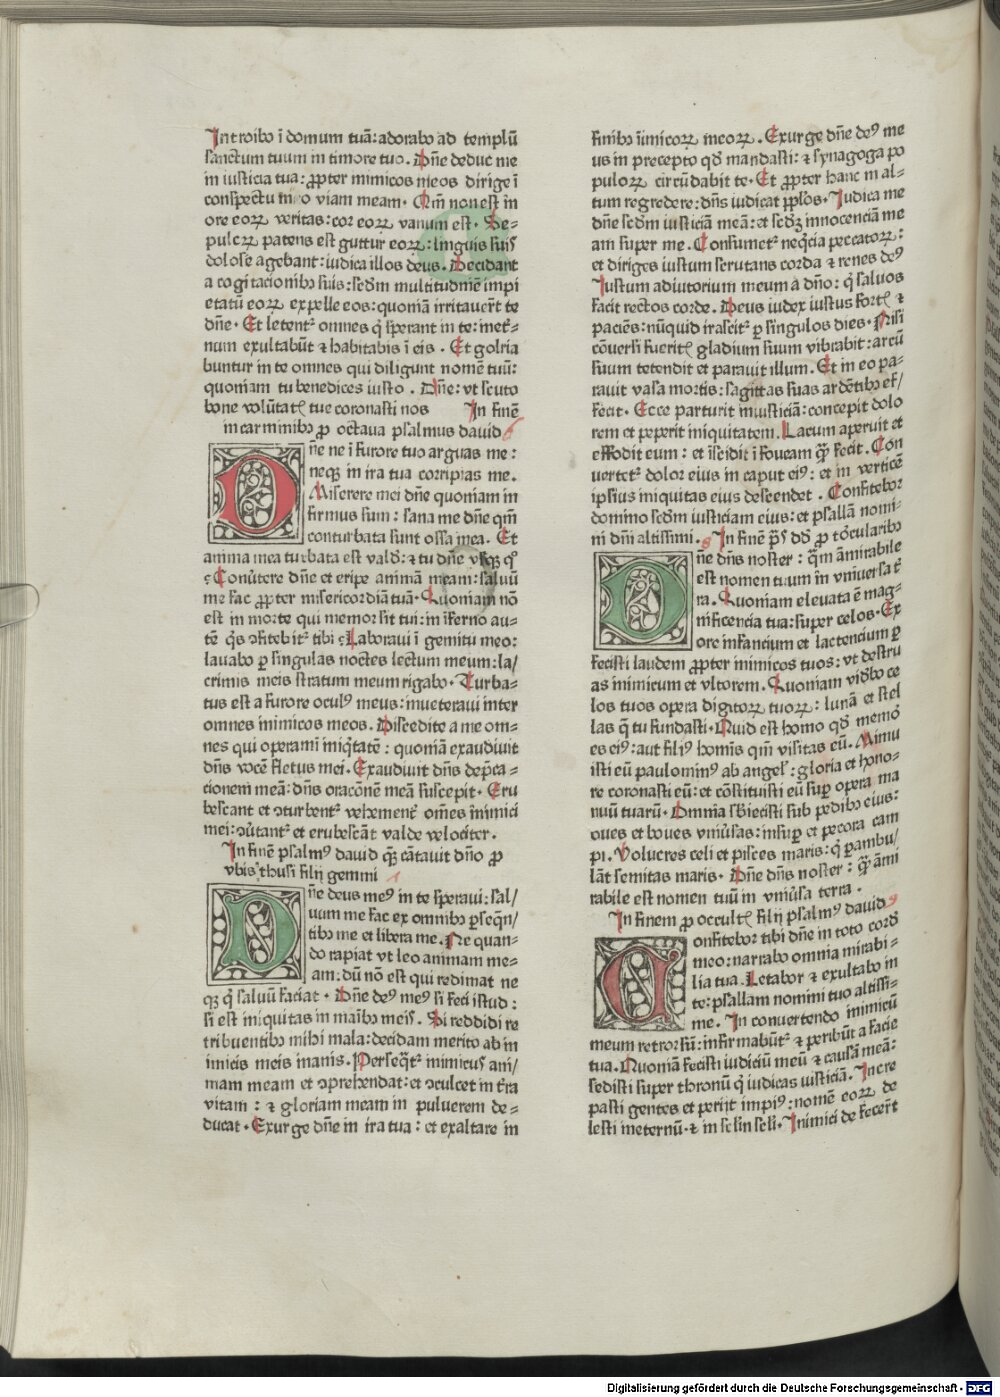 Introibo ī domum tuā: adorabo ad templū
sanctum tuum in timore tuo. Dn̄e deduc me
in iusticia tua: ꝓpter inimicos meos dirige ī
conspectu tuo viam meam. Qm̄ non est in
ore eoꝝ veritas: cor eoꝝ vanum est. Se-
pulcꝝ patens est guttur eoꝝ: linguis suis
dolose agebant: iudica illos deus. Decidant
a cogitacionibꝰ suis: scd̄m multitudinē impi
etatū eoꝝ expelle eos: quoniā irritauer̄t te
dn̄e. Et letent᷑ omnes q̄ sperant in te: inet̄-
num exultabūt ⁊ habitabis ī eis. Et gloria
buntur in te omnes qui diligunt nomē tuū:
quoniam tu benedices iusto. Dn̄e: vt scuto
bone volūtatꝭ tue coronasti nos In finē
in carminibꝰ ꝓ octaua psalmus dauid 6
Dn̄e ne ī furore tuo arguas me:
neqꝫ in ira tua corripias me.
Miserere mei dn̄e quoniam in
firmus sum: sana me dn̄e qm̄
conturbata sunt ossa mea. Et
anima mea turbata est vald̄: ⁊ tu dn̄e vsqꝫ qͦ
Conūtere dn̄e et eripe animā meam: saluū
me fac ꝓpter misericordiā tuā. Quoniam nō
est in morte qui memor sit tui: in inferno au-
tē q̄s ɔfitebit᷑ tibi Laboraui ī gemitu meo:
lauabo ꝑ singulas noctes lectum meum: la/
crimis meis stratum meum rigabo. Turba-
tus est a furore oculꝰ meus: inueteraui inter
omnes inimicos meos. Discedite a me om-
nes qui operamī iniq̄tatē: quoniā exaudiuit
dn̄s vocē fletus mei. Exaudiuit dn̄s dep̄ca-
cionem meā: dn̄s oracōnē meā suscepit. Eru
bescant et ɔturbent᷑ vehement᷑ om̄es inimici
mei: ɔūtant᷑ et erubescāt valde velociter.
In finē psalmꝰ dauid q̄ꝫ cātauit dn̄o ꝓ
vbis thusi filij gemini 7
Dn̄e deus meꝰ in te speraui: sal/
uum me fac ex omnibꝰ ꝑseq̄n/
tibꝰ me et libera me. Ne quan-
do rapiat vt leo animam me-
am: dū nō est qui redimat ne
qꝫ q̄ saluū faciat. Dn̄e deꝰ meꝰ si feci istud:
si est iniquitas in maībꝰ meis. Si reddidi re
tribuentibꝰ mihi mala: decidam merito ab in
imicis meis inanis. Perseq̄t᷑ inimicus ani/
mam meam et ɔprehendat: et ɔculcet in t̄ra
vitam: ⁊ gloriam meam in puluerem de-
ducat. Exurge dn̄e in ira tua: et exaltare in
finibꝰ īimicoꝝ meoꝝ. Exurge dn̄e deꝰ me
us in precepto qd̄ mandasti: ⁊ synagoga po
puloꝝ circūdabit te. Et ꝓpter hanc in al-
tum regredere: dn̄s iudicat pp̄los. Iudica me
dn̄e scd̄m iusticiā meā: et scd̄ꝫ innocenciā me
am super me. Consumet᷑ neq̄cia peccatoꝝ:
et diriges iustum scrutans corda ⁊ renes deꝰ
Iustum adiutorium meum à dn̄o: q̄ saluos
facit rectos corde. Deus iudex iustus fortꝭ ⁊
paciēs: nūquid irascit᷑ ꝑ singulos dies. Nisi
cōuersi fueritꝭ gladium suum vibrabit: arcū
suum tetendit et parauit illum. Et in eo pa-
rauit vasa mortis: sagittas suas ardētibꝰ ef/
fecit. Ecce parturit iniusticiā: concepit dolo
rem et peperit iniquitatem. Lacum aperuit et
effodit eum: et īscidit ī foueam q̄ꝫ fecit. Con
uertet᷑ dolor eius in caput eiꝰ: et in verticē
ipsius iniquitas eius descendet. Confitebor
domino scd̄m iusticiam eius: et psallā nomi-
ni dn̄i altissimi. 8 In finē p̄s dd̄ ꝓ tōrcularibꝰ
Dn̄e dn̄s noster: q̄m āmirabile
est nomen tuum in vniuersa t̄
ra. Quoniam eleuata ē mag-
nificencia tua: super celos. Ex
ore infancium et lactencium ꝑ
fecisti laudem ꝓpter inimicos tuos: vt destru
as inimicum et vltorem. Quoniam videbo ce
los tuos opera digitoꝝ tuoꝝ: lunā et stel
las q̄ tu fundasti. Quid est homo qd̄ memō
es eiꝰ: aut filiꝰ homīs qm̄ visitas eū. Minu
isti eū paulominꝰ ab angel̄: gloria et hono-
re coronasti eū: et cōstituisti eū suꝑ opera ma
nuū tuarū. Omnia sbiecisti sub pedibꝰ eius:
oues et boues vniuersas: insuꝑ et pecora cam
pi. Volucres celi et pisces maris: q̄ ꝑambu/
lāt semitas maris. Dn̄e dn̄s noster: q̄ꝫ āmi
rabile est nomen tuū in vniuersa terra.
In finem ꝓ occultꝭ filij psalmꝰ dauid 9
Confitebor tibi dn̄e in toto cord̄
meo: narrabo omnia mirabi-
lia tua. Letabor ⁊ exultabo in
te: psallam nomini tuo altissi-
me. In conuertendo inimicū
meum retrorsū: infirmabūt᷑ ⁊ peribūt a facie
tua. Quoniā fecisti iudiciū meū ⁊ causā meā:
sedisti super thronū q̄ iudicas iusticiā. Incre
pasti gentes et perijt impiꝰ: nomē eoꝝ de
lesti ineternū. ⁊ in sclm̄ scli. Inimici defecer̄t
Digitalisierung gefördert durch die Deutsche Forschungsgemeinschaft - DFG